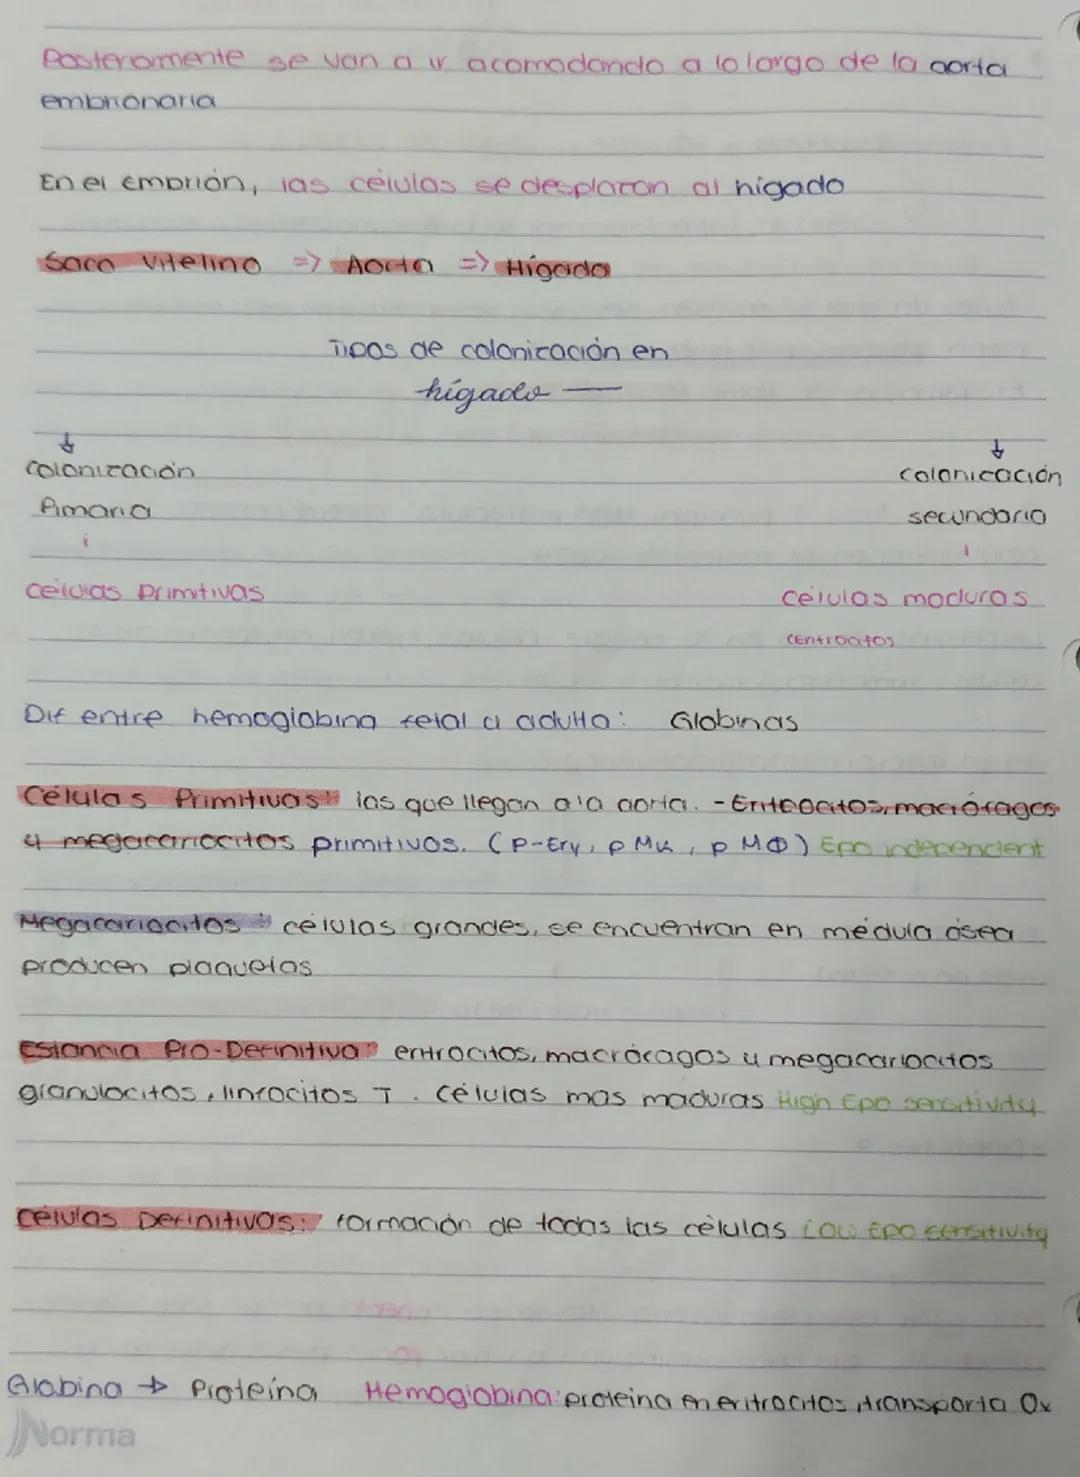 Posteriormente se van a ir acomodando a lo largo de la aorta
embrionaria
En el embrión, las células se desplazan al hígado
Saco Vitelino => Aorta => Hígado
Tipos de colonización en
hígado —
↓ ↓
Colonización colonización
Primaria secundaria
células primitivas células maduras
eritrocitos
Dif entre hemoglobina fetal a adulta: Globinas
Células Primitivas: las que llegan a la aorta. - Eritrocitos, macrófagos
y megacariocitos primitivos. (P-Ery, P MK, P MΦ) Epo independent
Megacariocitos: células grandes, se encuentran en médula ósea
producen plaquetas
Estancia Pro-Definitiva: eritrocitos, macrófagos y megacariocitos
granulocitos, linfocitos T. células mas maduras High Epo sensitivity
Células Definitivas: formación de todas las células Low Epo sensitivity
Globina → Proteína Hemoglobina: proteina en eritrocitos, transporta Ox
Norma